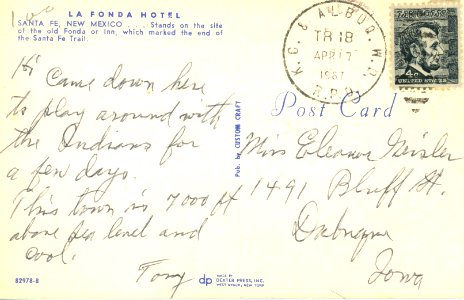 LA FONDA HOTEL
SANTA FE, NEW MEXICO . . . Stands on the site
of the old Fonda or Inn, which marked the end of
the Santa Fe Trail.
K.C. & ALBUQ. W.D.
TR 18
APR 17
1967
R.P.O.
4c
UNITED STATES
Hi Came down here
to play around with
the Indians for
a few days.
This town is 7000 ft
above sea level and
cool.
Tony
Pub. by CUSTOM CRAFT
Post Card
Miss Eleanor Geisler
1491 Bluff St.
Dubuque
Iowa
82978-B
dp
MADE BY
DEXTER PRESS, INC.
WEST NYACK, NEW YORK